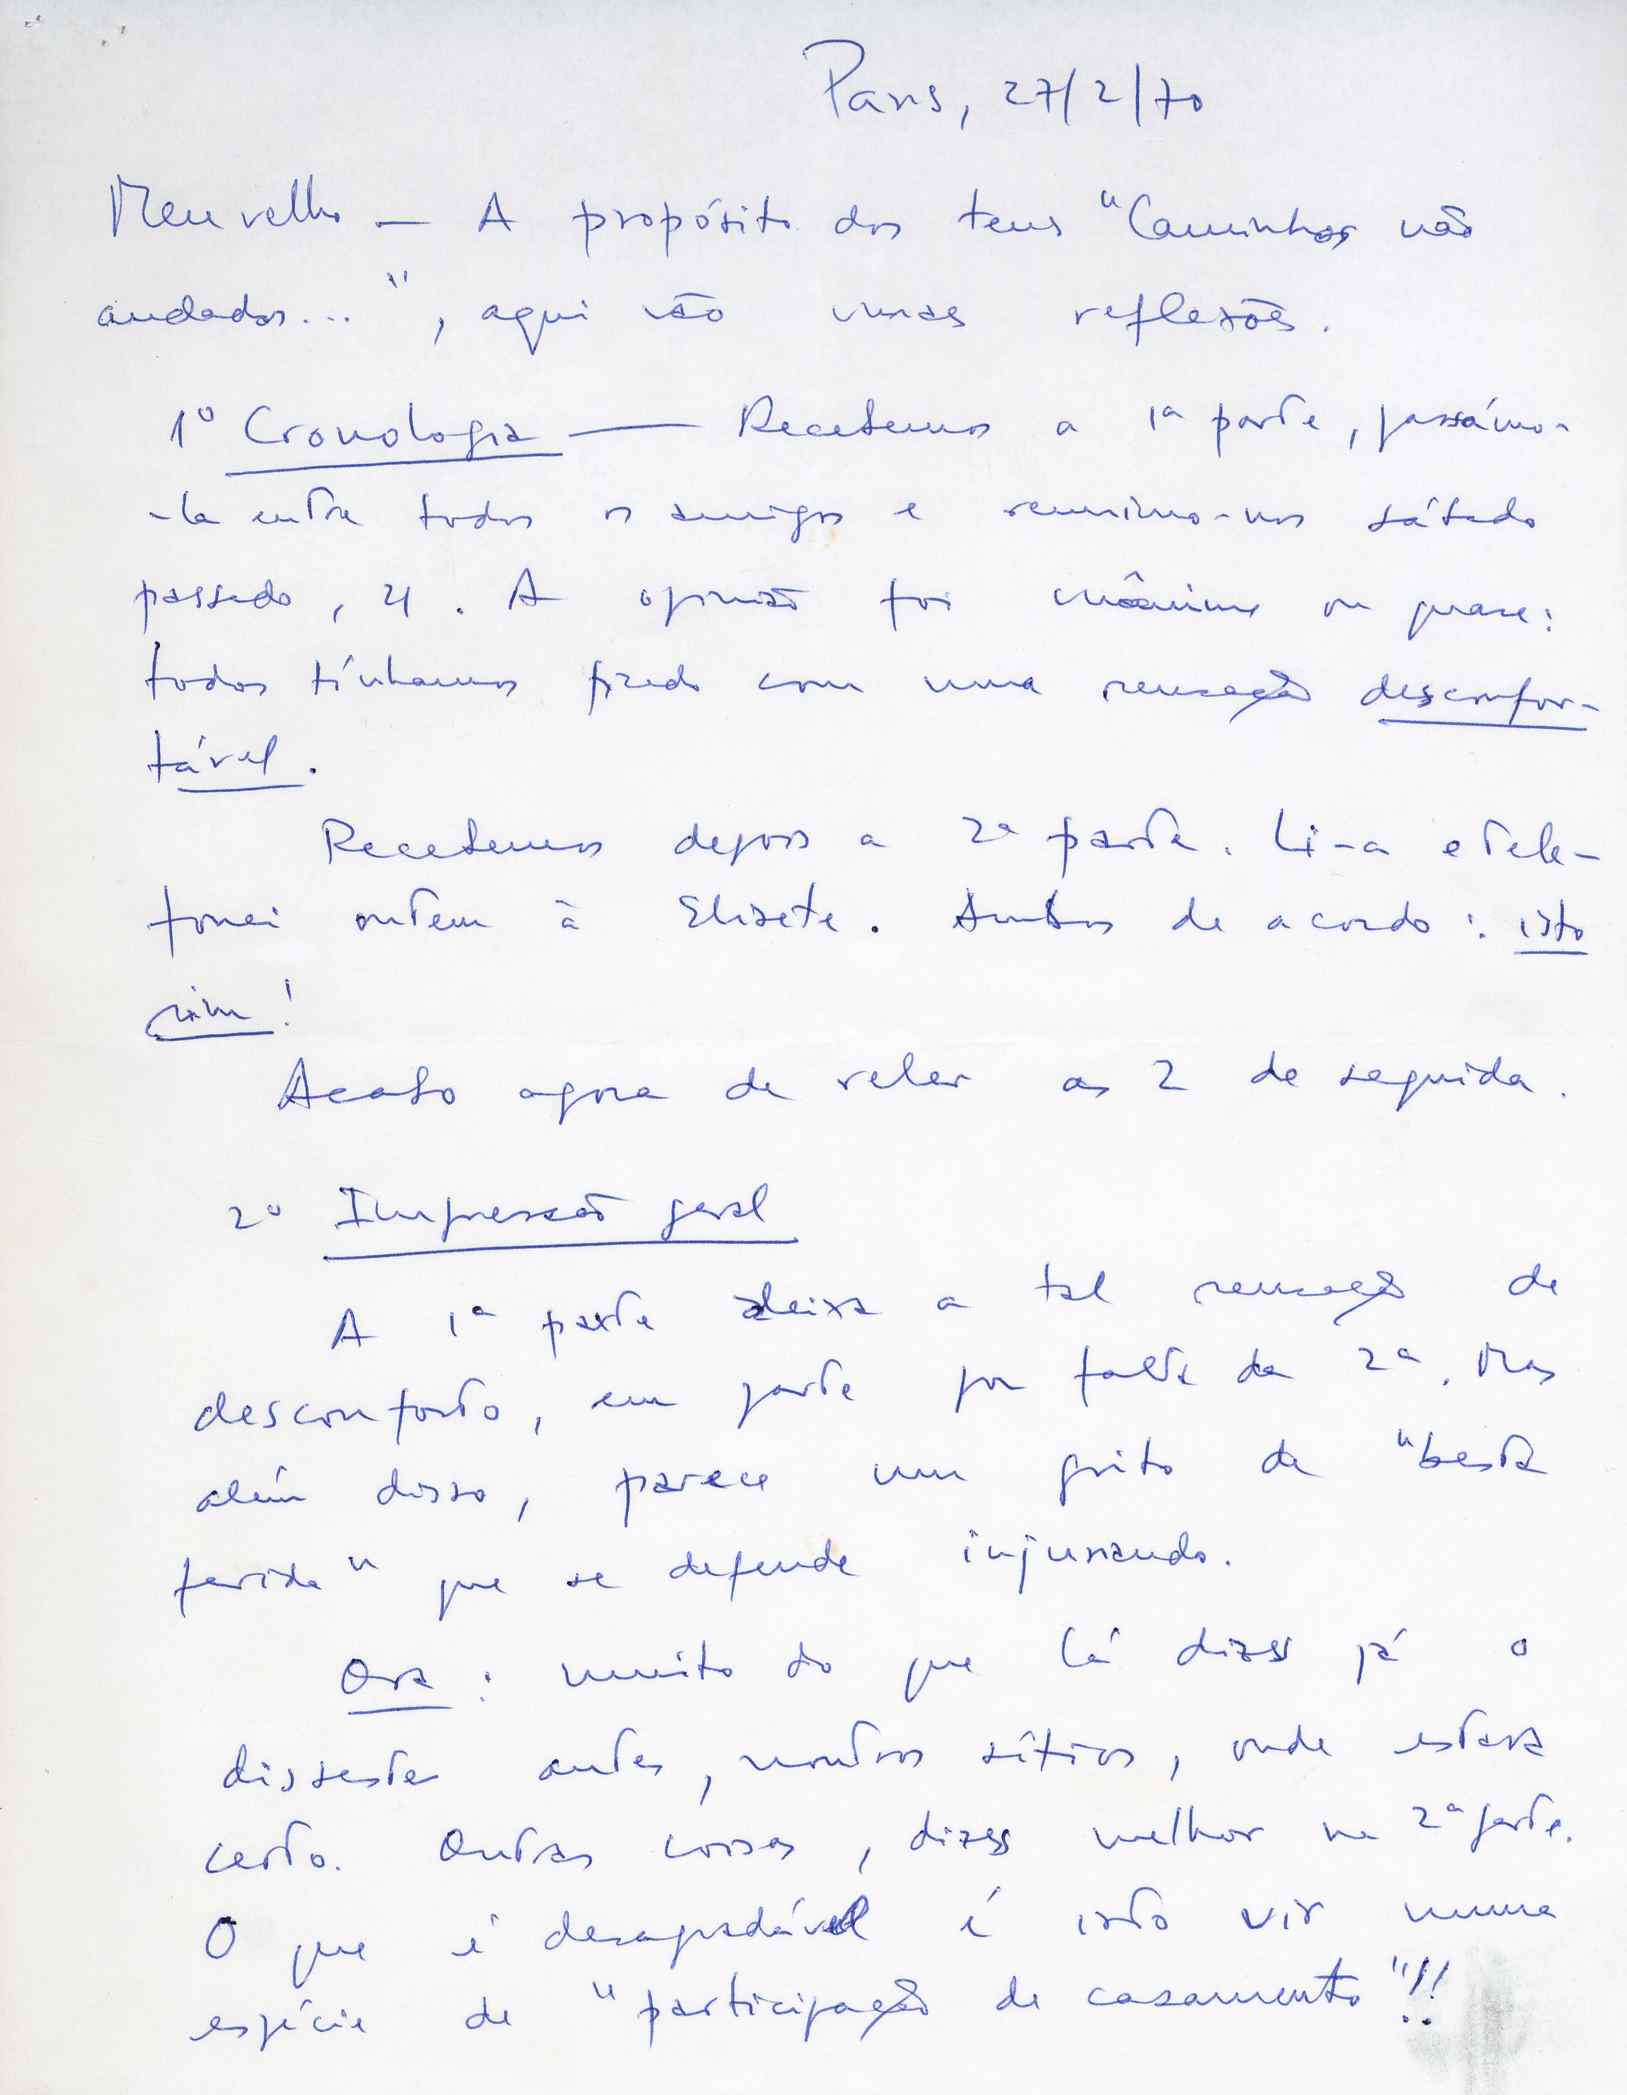 Paris, 27/2/70
Meu velho — A propósito dos teus "Caminhos não
andados...", aqui vão umas reflexões.
1º Cronologia — Recebemos a 1ª parte, passámo-
-la entre todos os amigos e reunimo-nos sábado
passado, 21. A opinião foi unânime ou quase:
todos tínhamos ficado com uma sensação desconfor-
tável.
Recebemos depois a 2ª parte. Li-a e tele-
fonei ontem à Elisete. Ambos de acordo: isto
sim!
Acabo agora de reler as 2 de seguida.
2º Impressão geral
A 1ª parte deixa a tal sensação de
desconforto, em parte por falta da 2ª. Mas
além disso, parece um grito de "besta
ferida" que se defende injuriando.
Ora: muito do que lá dizes já o
disseste antes, noutros sítios, onde estava
certo. Outras coisas, dizes melhor na 2ª parte.
O que é desagradável é isto vir numa
espécie de "participação de casamento"!!